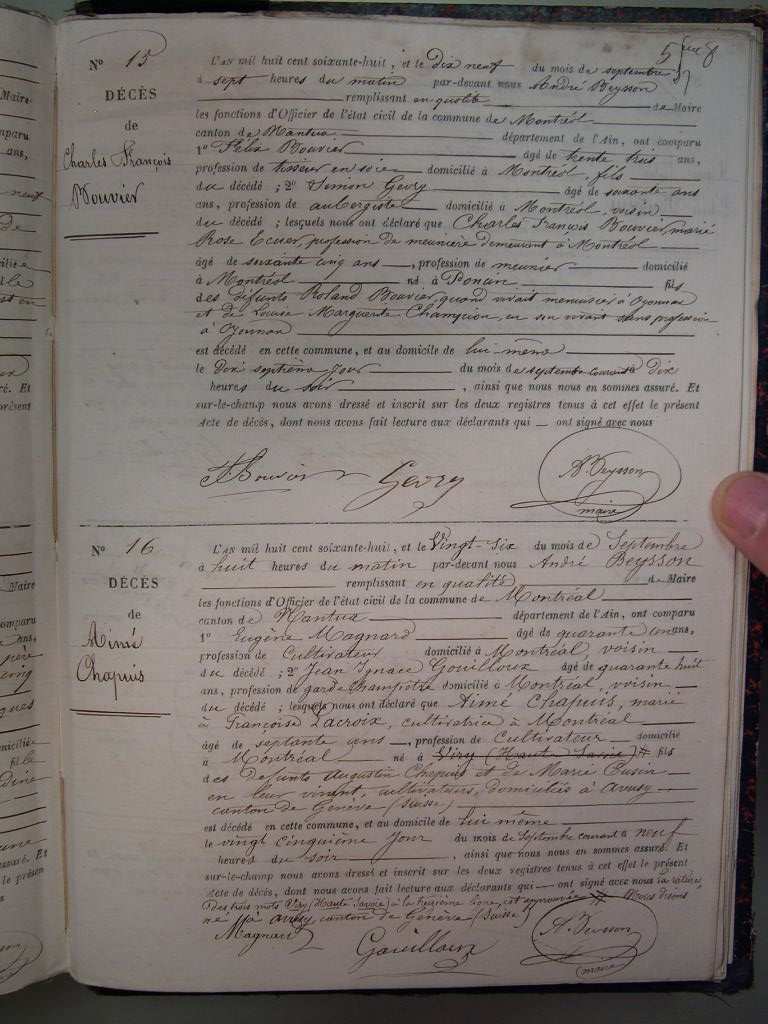 5
N° 15
DÉCÈS
de
Charles François
Bouvier
L'AN mil huit cent soixante-huit, et le Dix neuf du mois de septembre
à sept heures du matin par-devant nous André Beysson
remplissant en qualité de Maire
les fonctions d'Officier de l'état civil de la commune de Montréal
canton de Nantua département de l'Ain, ont comparu
1° Bouvier âgé de trente trois ans,
profession de tisseur en soie domicilié à Montréal, fils
du décédé ; 2° Simon Gevry âgé de soixante ans
ans, profession de aubergiste domicilié à Montréal, voisin
du décédé ; lesquels nous ont déclaré que Charles François Bouvier, marié
Rose profession de meunière demeurant à Montréal
âgé de soixante cinq ans, profession de meunier domicilié
à Montréal né à fils
des défunts Roland Bouvier, quand vivait menuisier à Oyonnax
et de Louise Marguerite Champion, en son vivant sans profession
à Oyonnax
est décédé en cette commune, et au domicile de lui-même
le Dix septième jour du mois de septembre courant à dix
heures du soir, ainsi que nous nous en sommes assuré. Et
sur-le-champ nous avons dressé et inscrit sur les deux registres tenus à cet effet le présent
Acte de décès, dont nous avons fait lecture aux déclarants qui ont signé avec nous
Bouvier Gevry A. Beysson
maire
N° 16
DÉCÈS
de
Aimé
Chapuis
L'AN mil huit cent soixante-huit, et le Vingt-Six du mois de Septembre
à huit heures du matin par-devant nous André Beysson
remplissant en qualité de Maire
les fonctions d'Officier de l'état civil de la commune de Montréal
canton de Nantua département de l'Ain, ont comparu
1° Eugène Magnard âgé de quarante ans,
profession de Cultivateur domicilié à Montréal, voisin
du décédé ; 2° Jean Ignace Gouilloux âgé de quarante huit
ans, profession de garde champêtre domicilié à Montréal, voisin
du décédé ; lesquels nous ont déclaré que Aimé Chapuis, marié
à Françoise Lacroix, cultivatrice à Montréal
âgé de septante ans, profession de Cultivateur domicilié
à Montréal né à Viry (Haute Savoie) fils
des Défunts Augustin Chapuis et de Marie Cusin
en leur vivant, cultivateurs, domiciliés à Avusy
canton de Genève (Suisse)
est décédé en cette commune, et au domicile de Lui même
le vingt cinquième jour du mois de Septembre courant à neuf
heures du soir, ainsi que nous nous en sommes assuré. Et
sur-le-champ nous avons dressé et inscrit sur les deux registres tenus à cet effet le présent
Acte de décès, dont nous avons fait lecture aux déclarants qui ont signé avec nous la rature
Des trois mots Viry (Haute Savoie) à la huitième ligne, est approuvée Nous disons
né à avusy canton de Genève (Suisse)
Magnard Gouilloux A. Beysson
maire